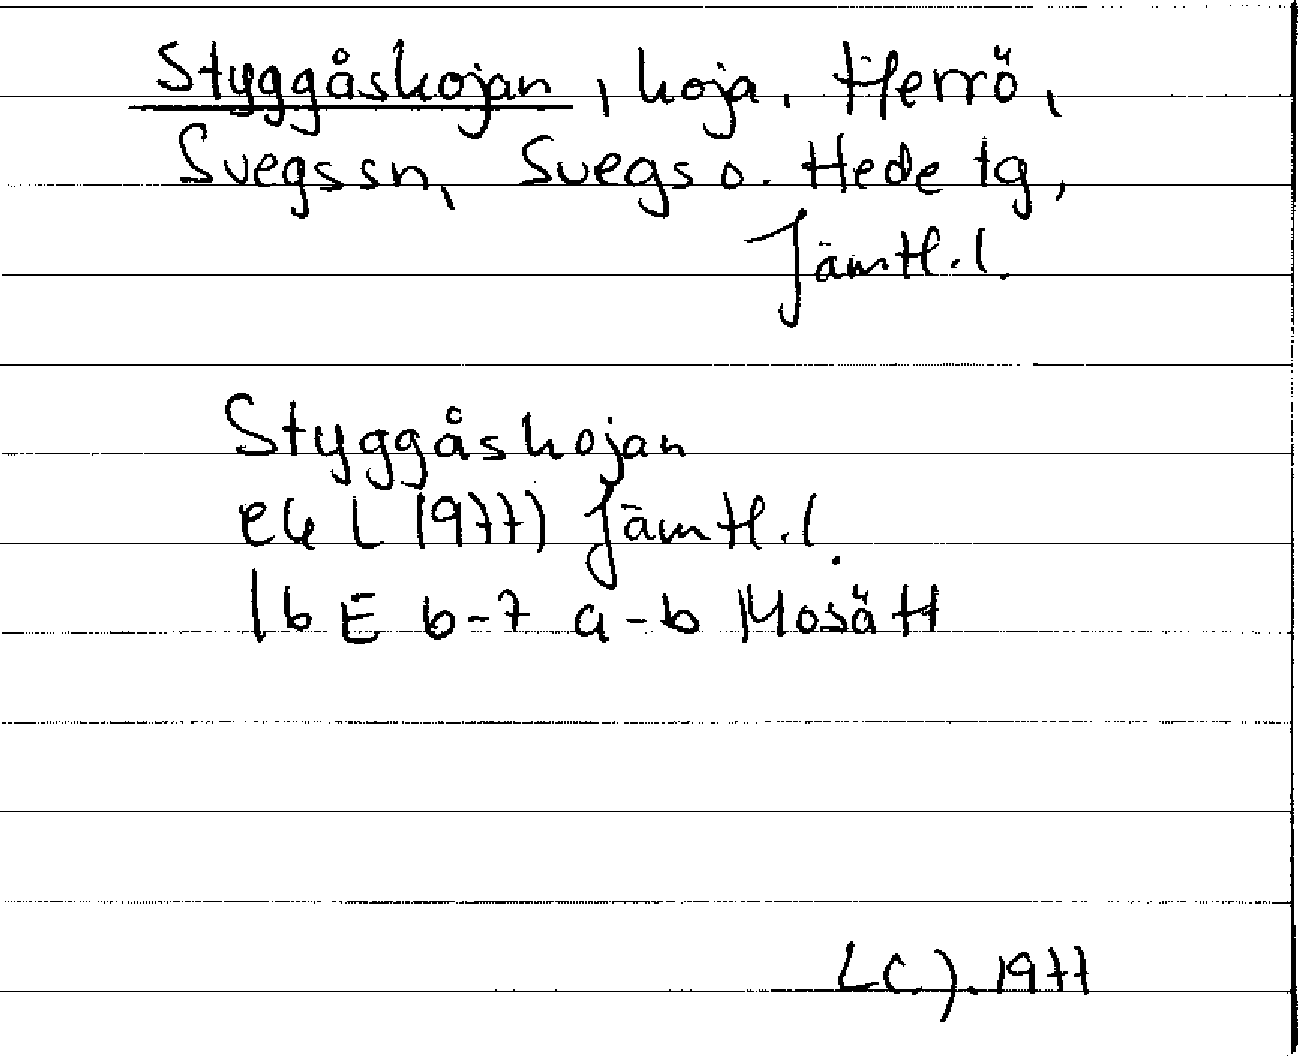 Styggåskojan, koja, Herrö,
Svegs sn, Svegs o. Hede tg,
Jämtl. l.
Styggåskojan
ek L (1977) Jämtl. l.
16 E 6-7 a-b Mosätt
1977